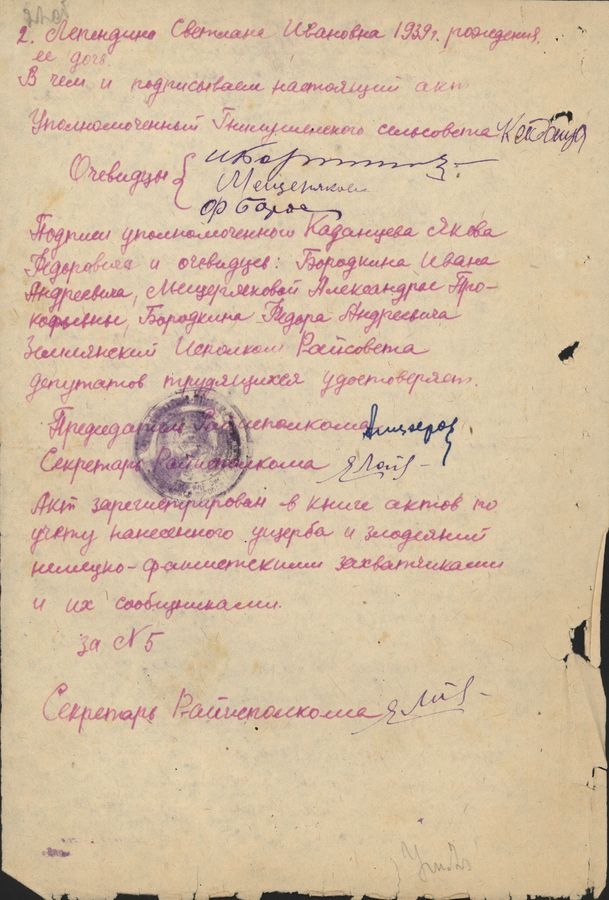 2. Лепендина Светлане Ивановна 1939 г. рождения,
ее дочь.
В чем и подписываем настоящий акт
Уполномоченный сельсовета
Очевидцы {
Мещерякова
Ф Бород
Подписи уполномоченного Каданцева Якова
Федоровича и очевидцев: Бородкина Ивана
Андреевича, Мещеряковой Александры Про-
кофьевны, Бородкина Федора Андреевича
Землянский Исполком Райсовета
депутатов трудящихся удостоверяет.
Председатель Райисполкома
Секретарь Райисполкома
Акт зарегистрирован в книге актов по
учету нанесенного ущерба и злодеяний
немецко-фашистскими захватчиками
и их сообщниками.
за № 5
Секретарь Райисполкома